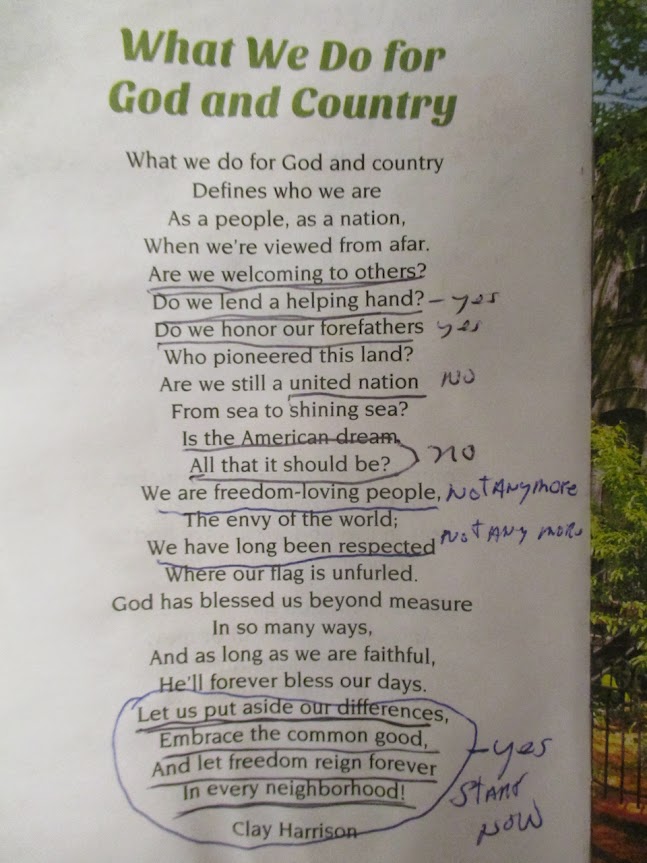 What We Do for
God and Country
What we do for God and country
Defines who we are
As a people, as a nation,
When we're viewed from afar.
Are we welcoming to others?
Do we lend a helping hand? - yes
Do we honor our forefathers yes
Who pioneered this land?
Are we still a united nation NO
From sea to shining sea?
Is the American dream,
All that it should be? NO
We are freedom-loving people, Not Anymore
The envy of the world;
We have long been respected Not Any more
Where our flag is unfurled.
God has blessed us beyond measure
In so many ways,
And as long as we are faithful,
He'll forever bless our days.
Let us put aside our differences,
Embrace the common good, - yes
And let freedom reign forever
In every neighborhood! START
NOW
Clay Harrison